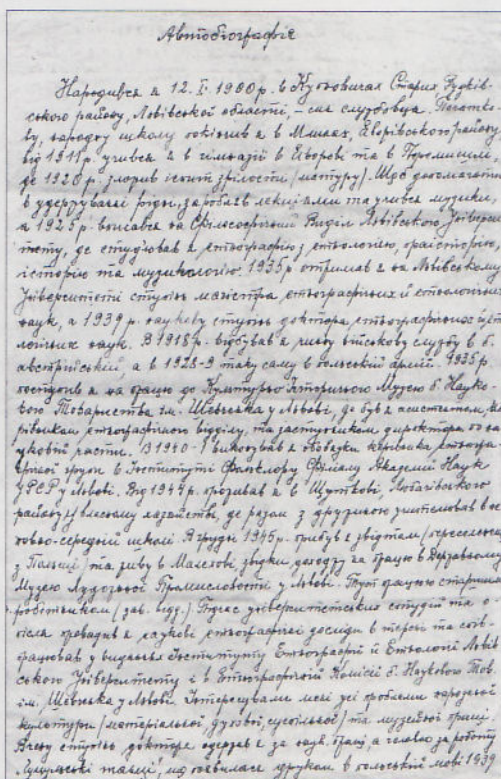 Автобіографія
Народився я 12. I. 1900 р. в Стария Рудків-
ського району, Львівської области, – син службовця. Початко-
ву, народну школу скінчив я в Яворівського району
від 1911 р. учився я в гімназії в Яворові та в Перемишлі,
де 1920 р. зложив іспит зрілости (матуру). Щоб допомагати
в удержуванні рідні, заробляв лекціями та учився музики,
а 1925 р. вписався на Філософічний Виділ Львівського Універси-
тету, де студіював я етнографію з етнологією, праісторію,
історію та музикологію. 1935 р. отримав я на Львівському
Університеті ступінь магістра етнографічних й етнологічних
наук, а 1939 р. наукову ступінь доктора етнографічних і ет-
нологічних наук. В 1918 р. відбував я військову службу в б.
австрійській, а в 1928-9 таку саму в польській армії. 1935 р.
поступив я на працю до Культурно Історичного Музею б. Науко-
вого Товариства ім. Шевченка у Львові, де був я асистентом, ке-
рівником етнографічного відділу, та заступником директора по на-
уковій части. В 1940-1 виконував я обовязки керівника етногра-
фічної групи в Інституті Фолкльору, Філіялу Академії Наук
УРСР у Львові. Від 1944 р. проживав я в Щуткові, Любачівського
району, у власному хазяйстві, де разом з дружиною учителював в
-середній школі. В грудні 1945 р. прибув я звідтам (переселенець
з Польщі) та живу в Малехові, звідки доходжу на працю в Державному
Музею Художньої Промисловости у Львові. Тут працюю старшим
робітником (зав. відд.) Підчас університетських студій та
після провадив я наукові етнографічні досліди в терені та спів-
працював у виданнях Інституту Етнографії й Етнології Львів-
ського Університету і в Етнографічній Комісії б. Наукового Тов.
ім. Шевченка у Львові. Інтересували мене усі проблеми народної
культури (матеріяльної, духової, суспільної) та музейної праці.
ступінь доктора одержав я за наук. праці, а головно за роботу
танці", що появилася друком в польській мові 1939